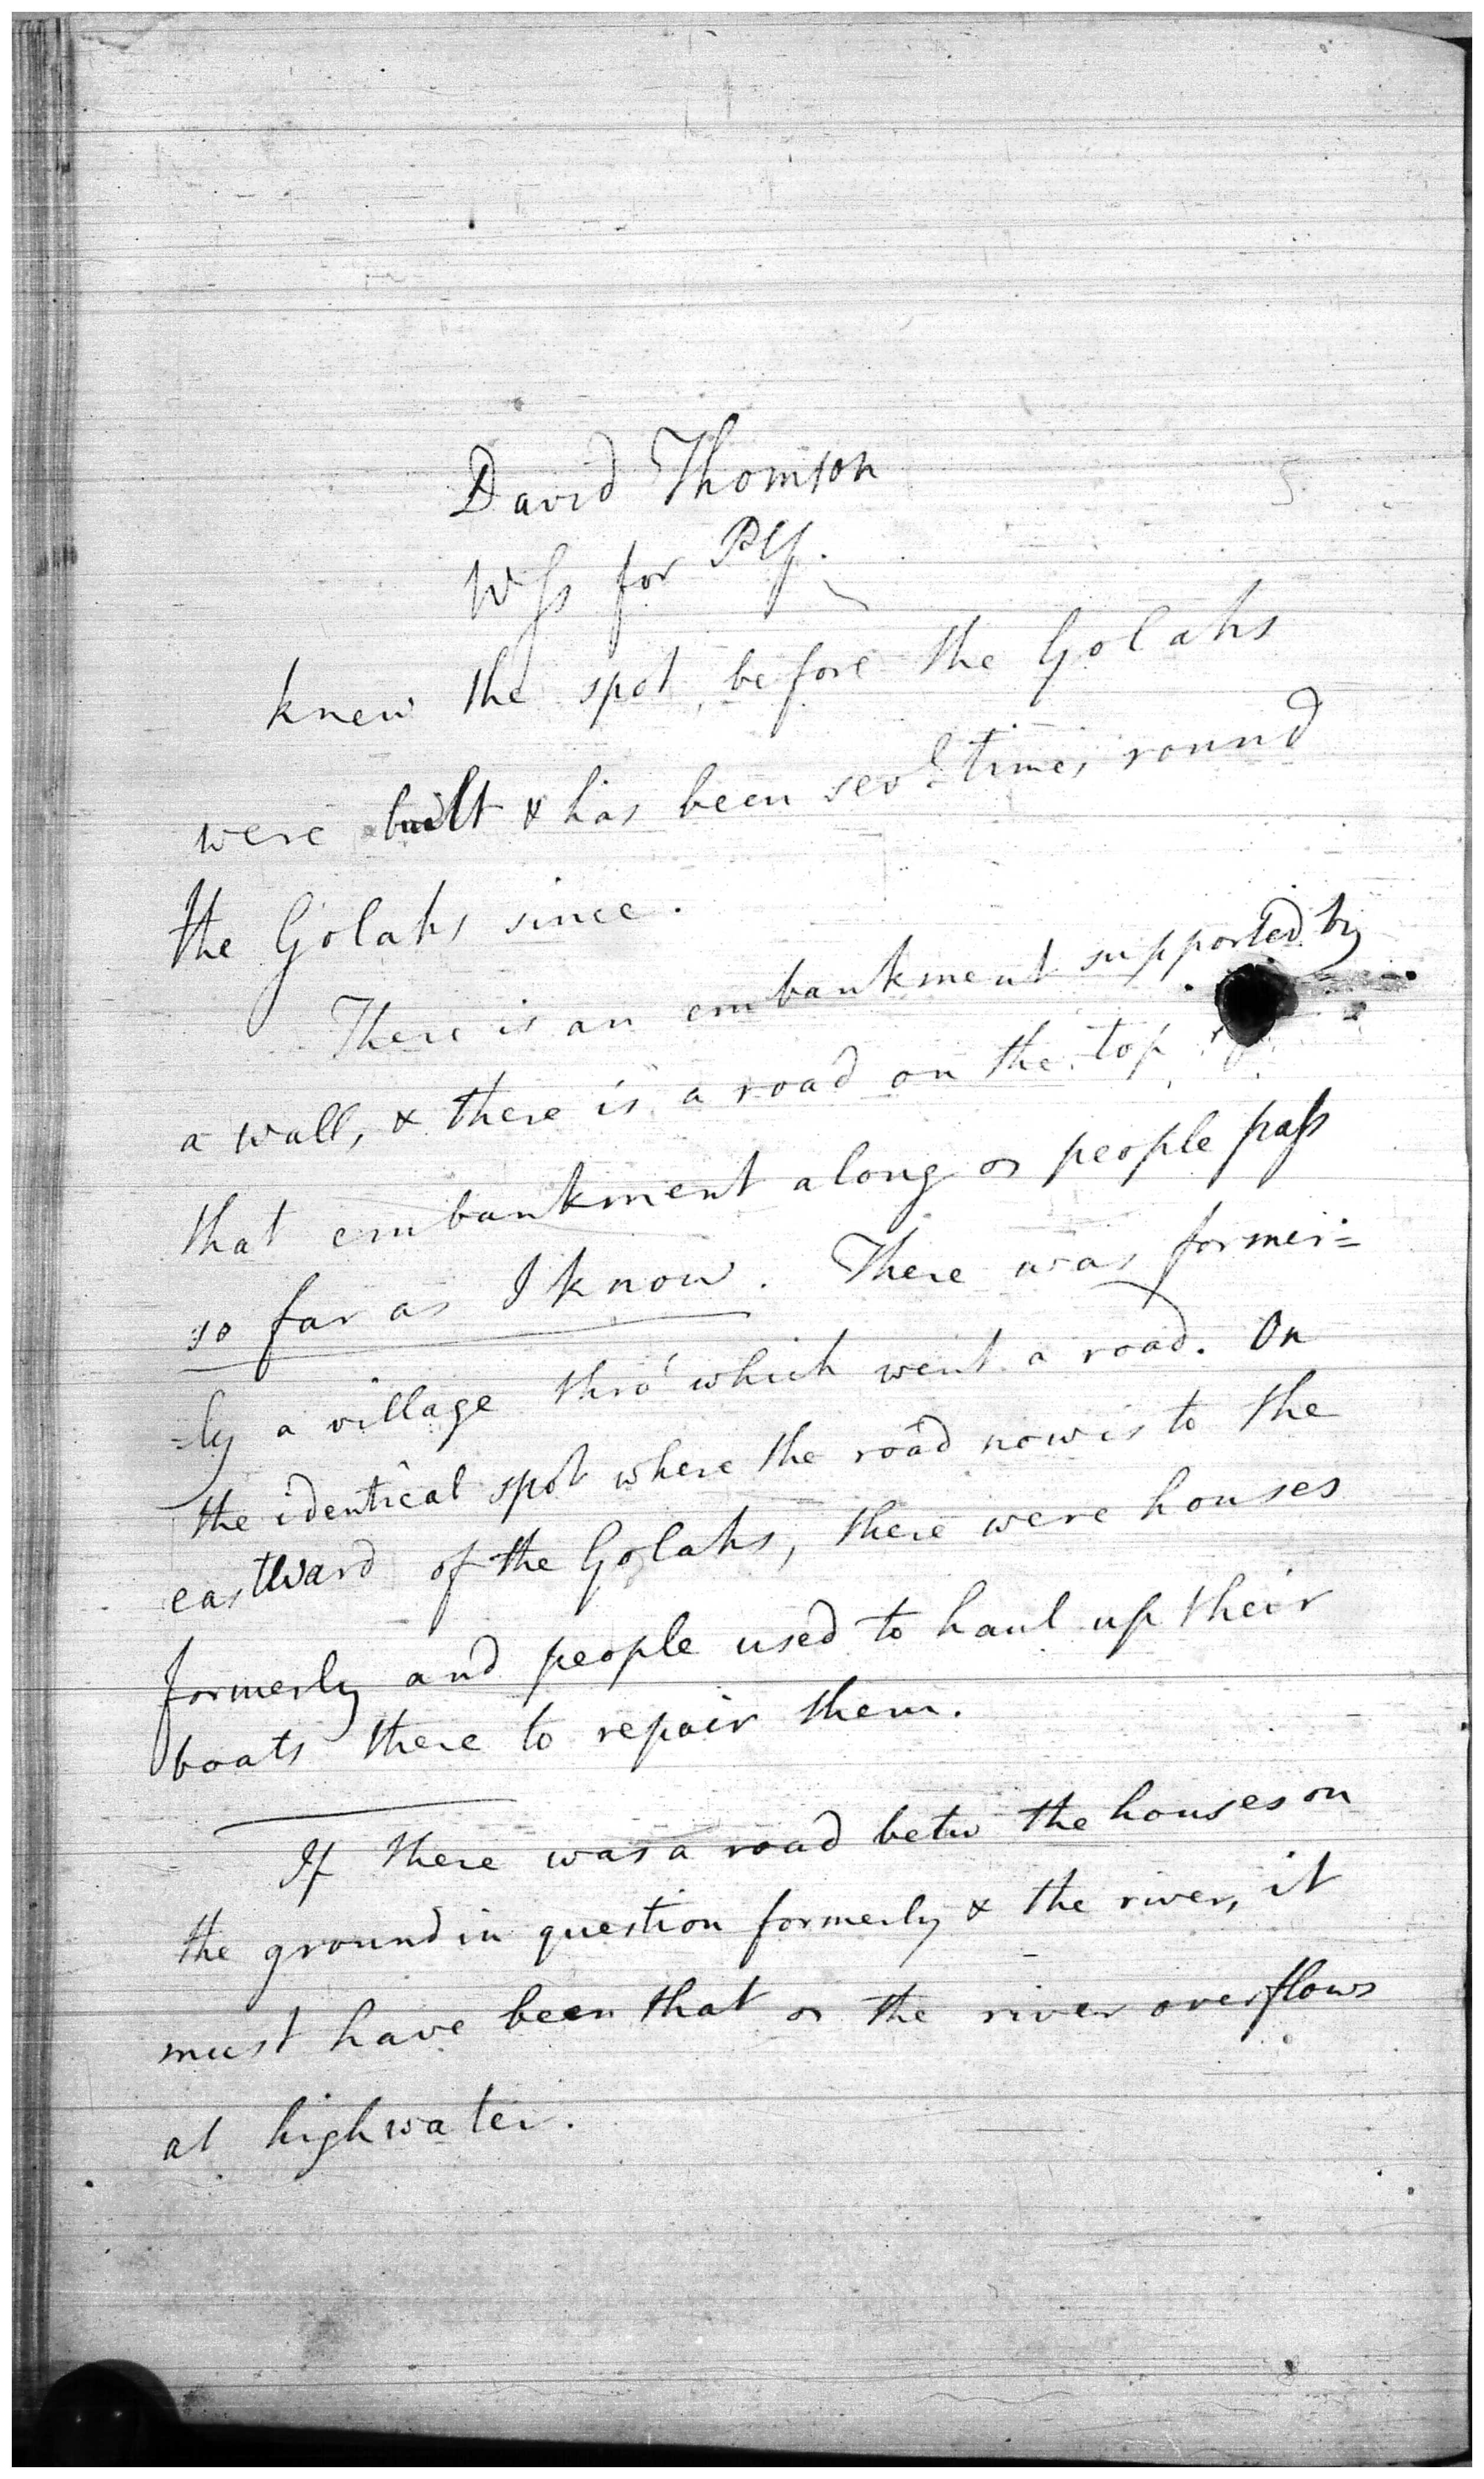 David Thomson
Wss for Plf.
knew the spot, before the Golahs
were built & has been sevl. times round
the Golahs since.
There is an embankment supported by
a wall, & there is a road on the top
that embankment along wh people pass
so far as I know. There was former=
=ly a village thro' which went a road. On
the identical spot where the road now is to the
eastward of the Golahs, there were houses
formerly and people used to haul up their
boats there to repair them.
If there was a road betw the houses on
the ground in question formerly & the river, it
must have been that wh the river overflows
at highwater.